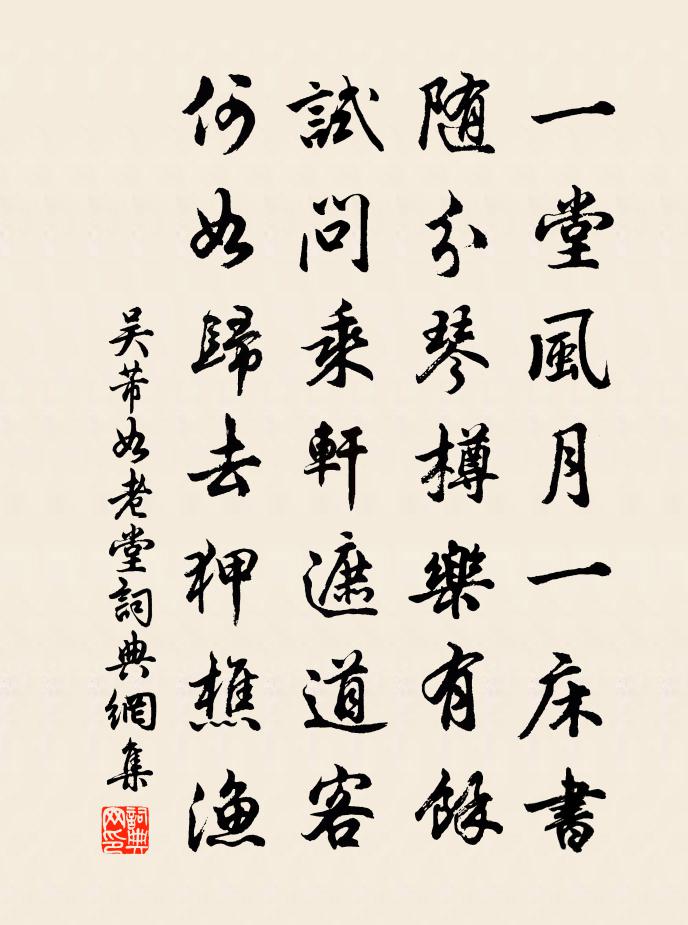 一堂風月一床書
随分琴樽樂有餘
試問乘軒遮道客
何如歸去狎樵漁
吴芾如老堂詞典網集
詞典网印